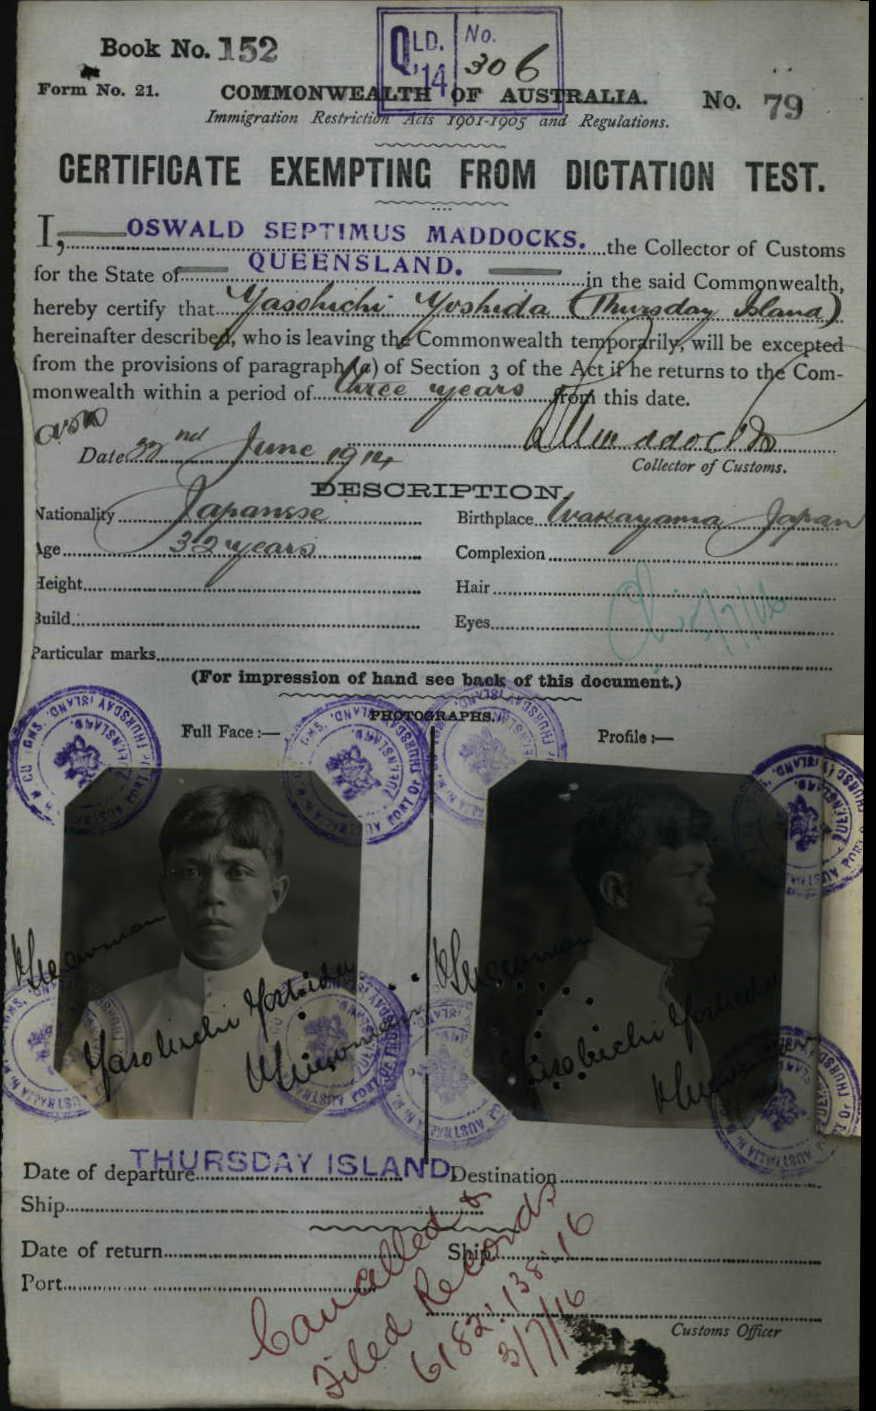 Book No. 152
QLD. '14 No. 306
Form No. 21.
COMMONWEALTH OF AUSTRALIA. No. 79
Immigration Restriction Acts 1901-1905 and Regulations.
CERTIFICATE EXEMPTING FROM DICTATION TEST.
I, OSWALD SEPTIMUS MADDOCKS. the Collector of Customs
for the State of QUEENSLAND. in the said Commonwealth,
hereby certify that Yasohichi Yoshida (Thursday Island)
hereinafter described, who is leaving the Commonwealth temporarily, will be excepted
from the provisions of paragraph (a) of Section 3 of the Act if he returns to the Com-
monwealth within a period of three years from this date.
Date 22nd June 1914
Collector of Customs.
DESCRIPTION.
Nationality Japanese Birthplace Wakayama Japan
Age 32 years Complexion
Height Hair
Build Eyes
Particular marks
(For impression of hand see back of this document.)
PHOTOGRAPHS.
Full Face :— Profile :—
Yasohichi Yoshida
Yasohichi Yoshida
THURSDAY ISLAND
Date of departure Destination
Ship
Date of return Ship
Port
Cancelled &
Filed Records
6182.138.16
3/7/16
Customs Officer